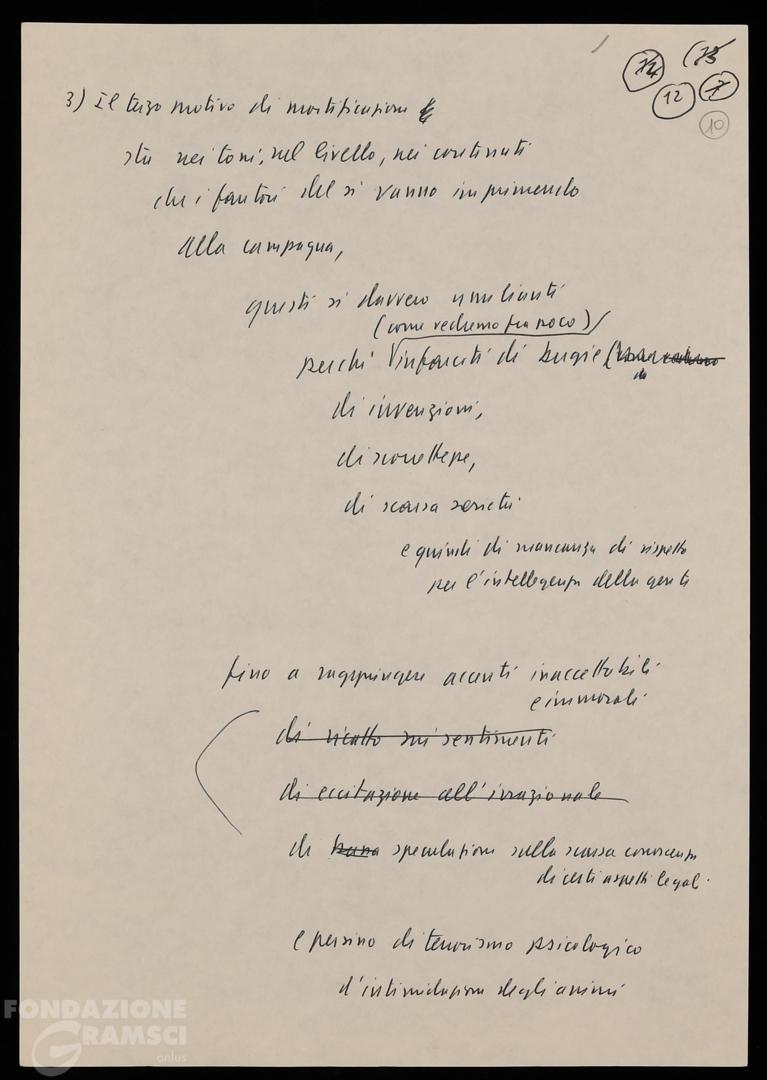 74 73
12 7
10
3) Il terzo motivo di mortificazione
sta nei toni, nel livello, nei contenuti
che i fautori del sì vanno imprimendo
alla campagna,
questi sì davvero umilianti
(come vedremo fra poco)
perché infarciti di bugie
di invenzioni,
di sconcettezze,
di scarsa serietà
e quindi di mancanza di rispetto
per l'intelligenza della gente
fino a raggiungere accenti inaccettabili
e immorali
di ricatto sui sentimenti
di eccitazione all'irrazionale
di bassa speculazione sulla scarsa conoscenza
di certi aspetti legali
e persino di terrorismo psicologico
d'intimidazione degli animi
FONDAZIONE
GRAMSCI
onlus